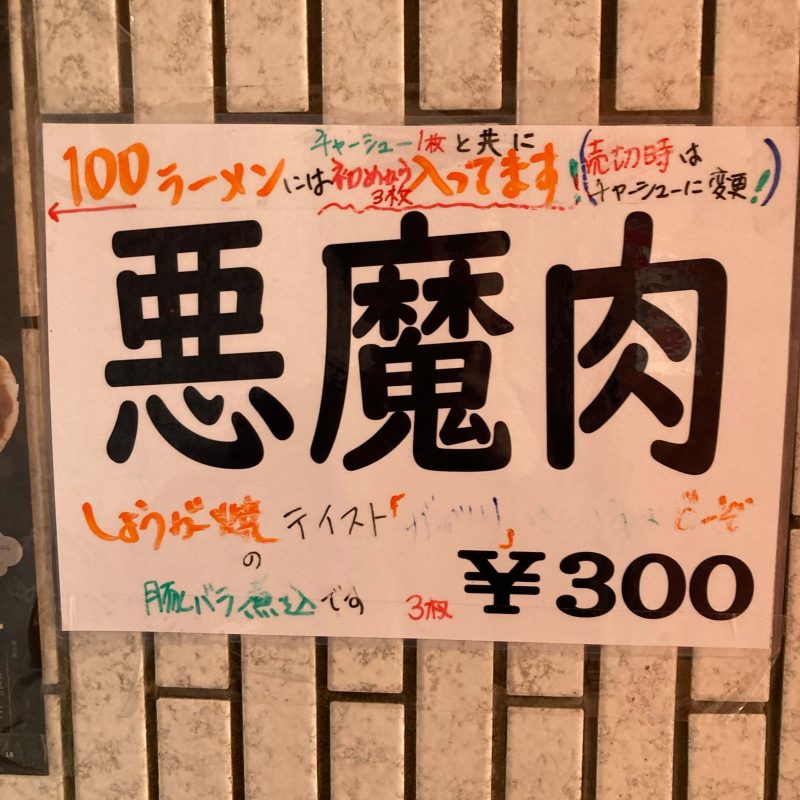 チャーシュー1枚と共に
100ラーメンには初めから3枚入ってます!
(売切時はチャーシューに変更!)
悪魔肉
しょうが焼テイスト「
どーぞ
の
豚バラ煮込です
3枚 ¥300